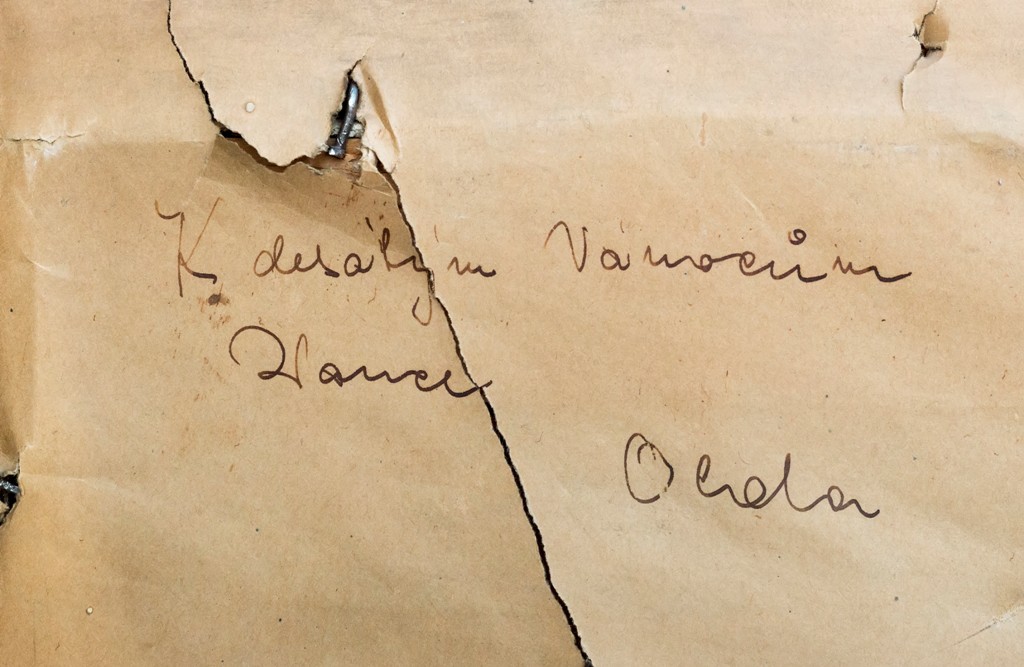 K desátým Vánocům
Hance
Olda